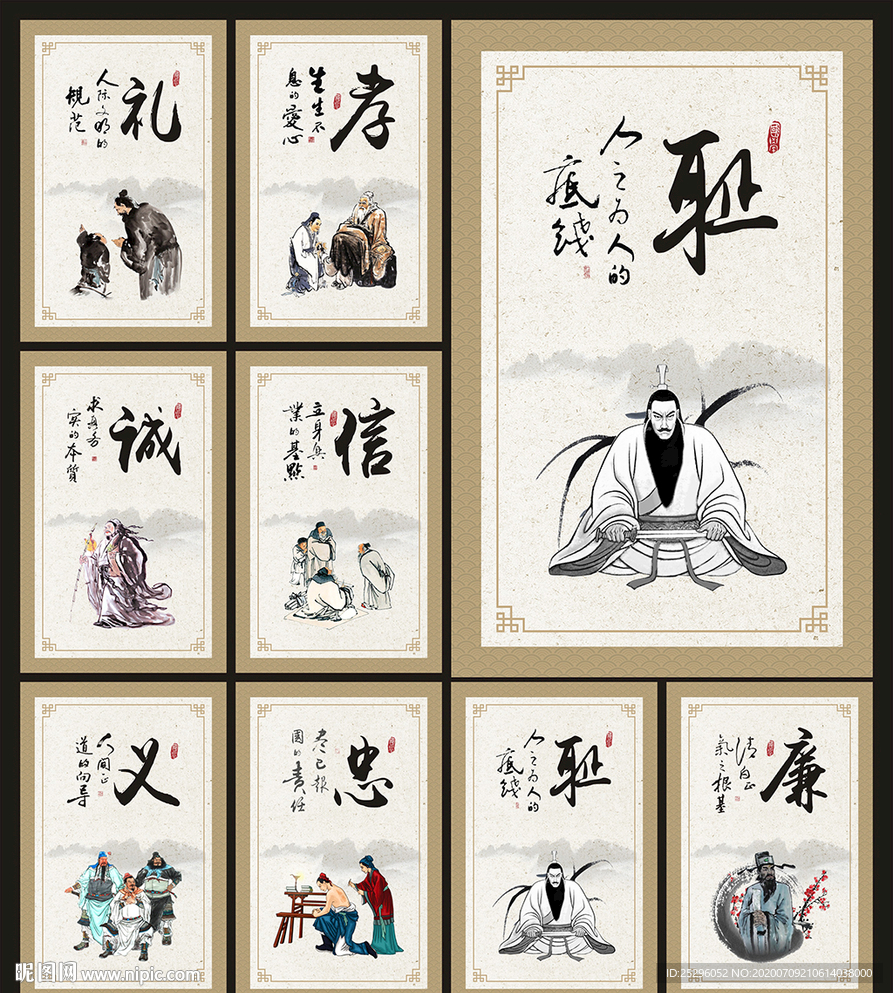 礼
人际文明的
规范
孝
生生不
息的愛心
耻
人之为人的
底线
诚
求真务
实的本質
信
立身興
業的基點
义
人间正
道的向导
忠
尽己报
國的责任
耻
人之为人的
底线
廉
清白正
氣之根基
昵图网 www.nipic.com
ID:25296052 NO:20200709210614038000